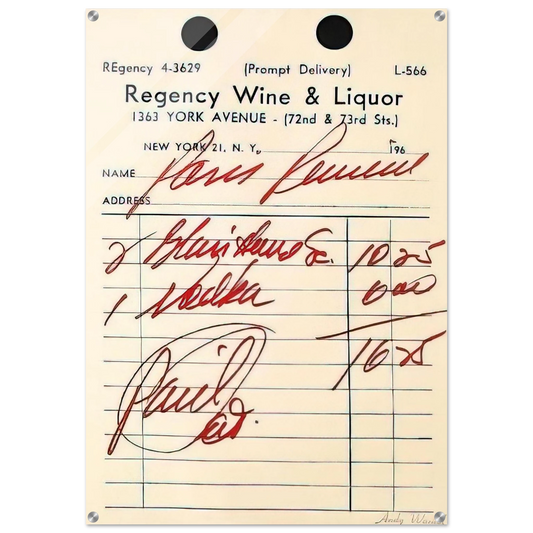 REgency 4-3629 (Prompt Delivery) L-566
Regency Wine & Liquor
1363 YORK AVENUE - (72nd & 73rd Sts.)
NEW YORK 21, N. Y., 196
NAME Paris
ADDRESS
2 10 25
1 Vodka 6 00
16 25
Paid
Andy